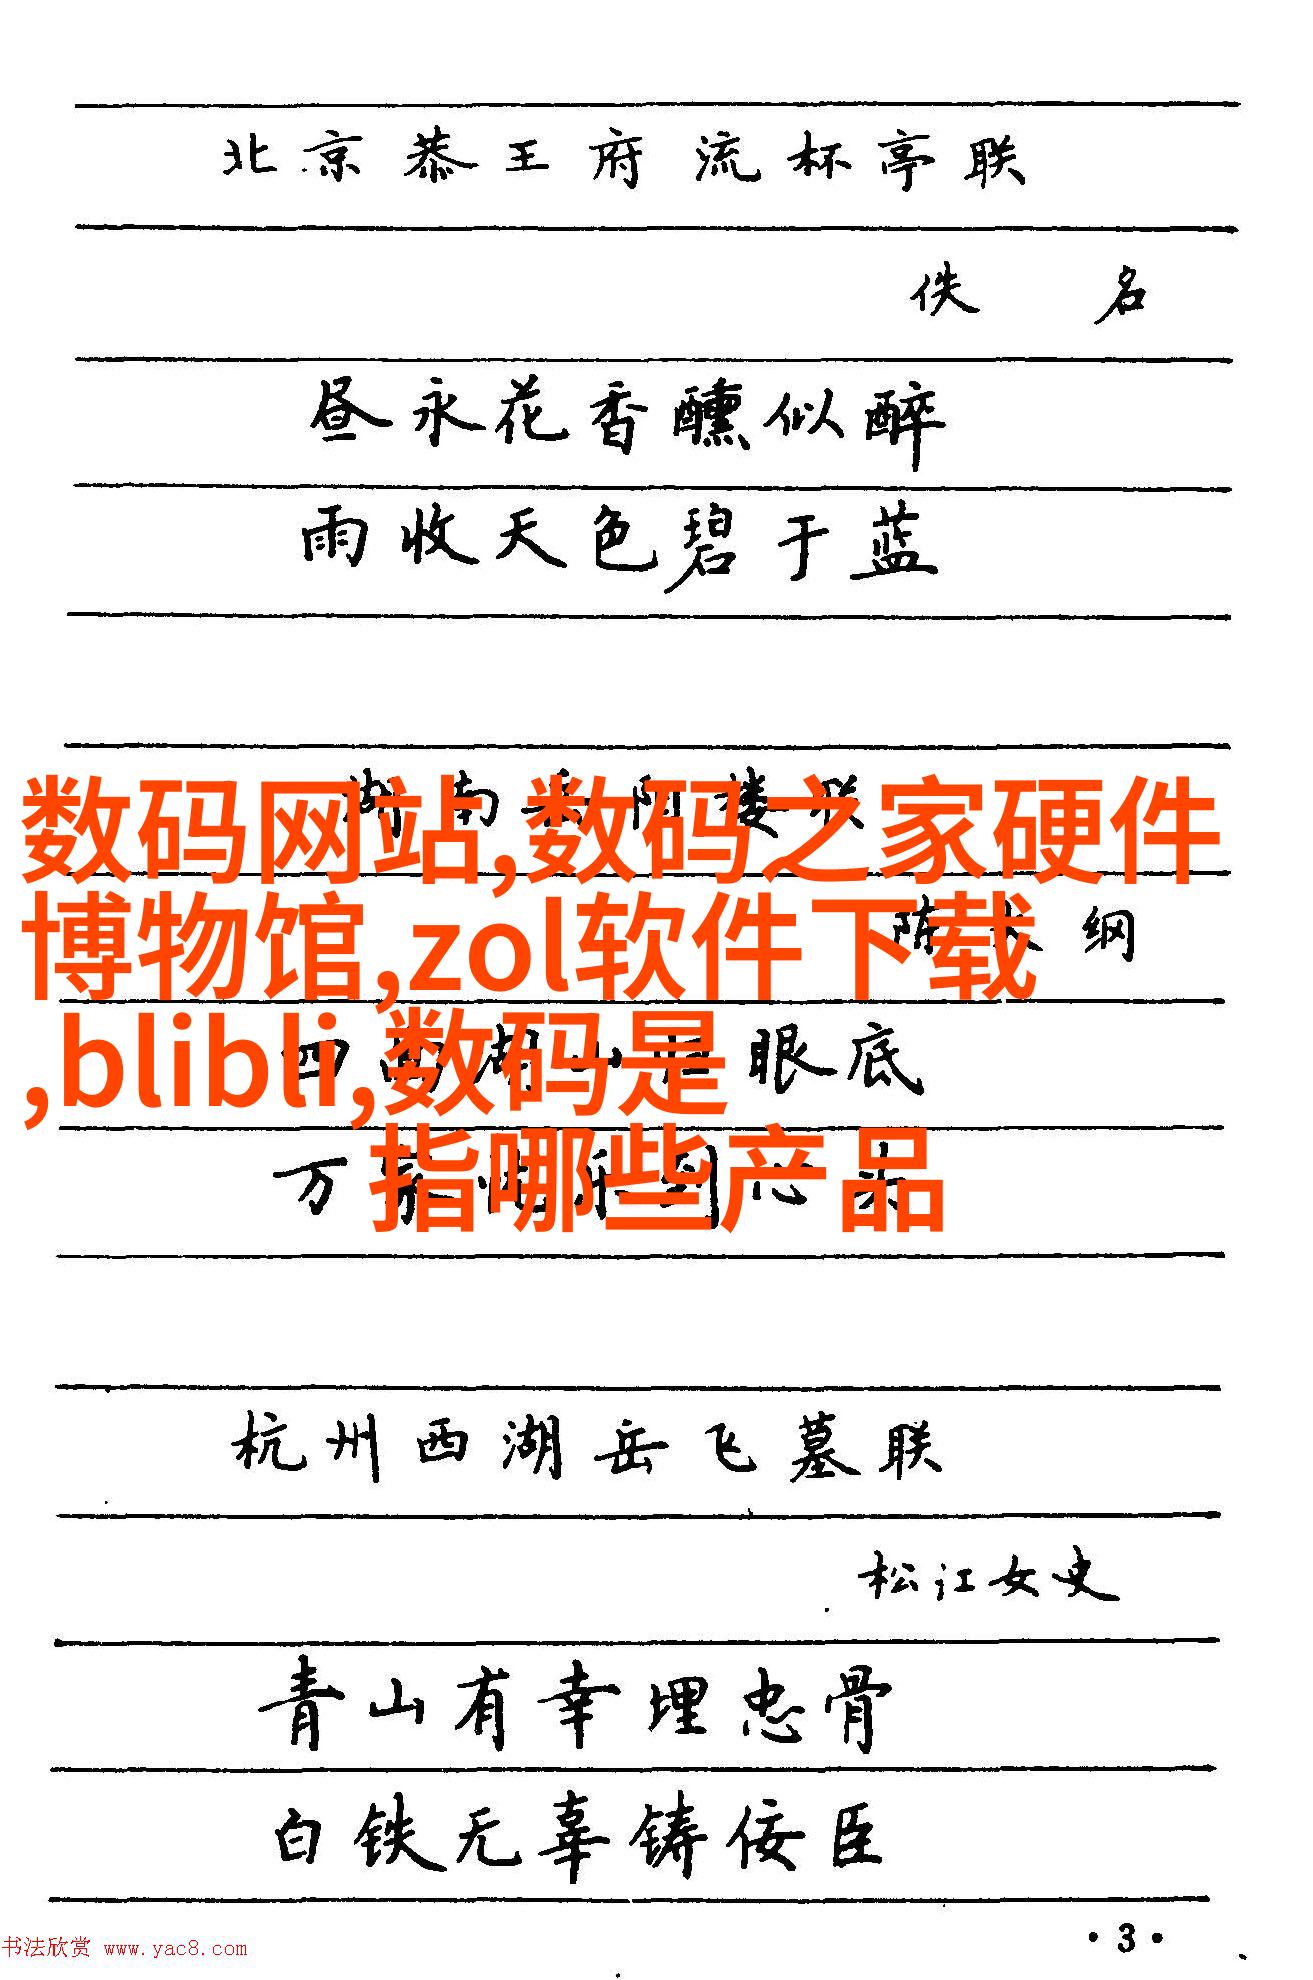 北京恭王府流杯亭联
佚名
昼永花香醺似醉
雨收天色碧于蓝
湖南岳阳楼联
数码网站,数码之家硬件
陈大纲
博物馆,zol软件下载
四面湖山归眼底
,blibli,数码是
万家忧乐到心头
指哪些产品
杭州西湖岳飞墓联
松江女史
青山有幸埋忠骨
白铁无辜铸佞臣
·3·
书法欣赏 www.yac8.com